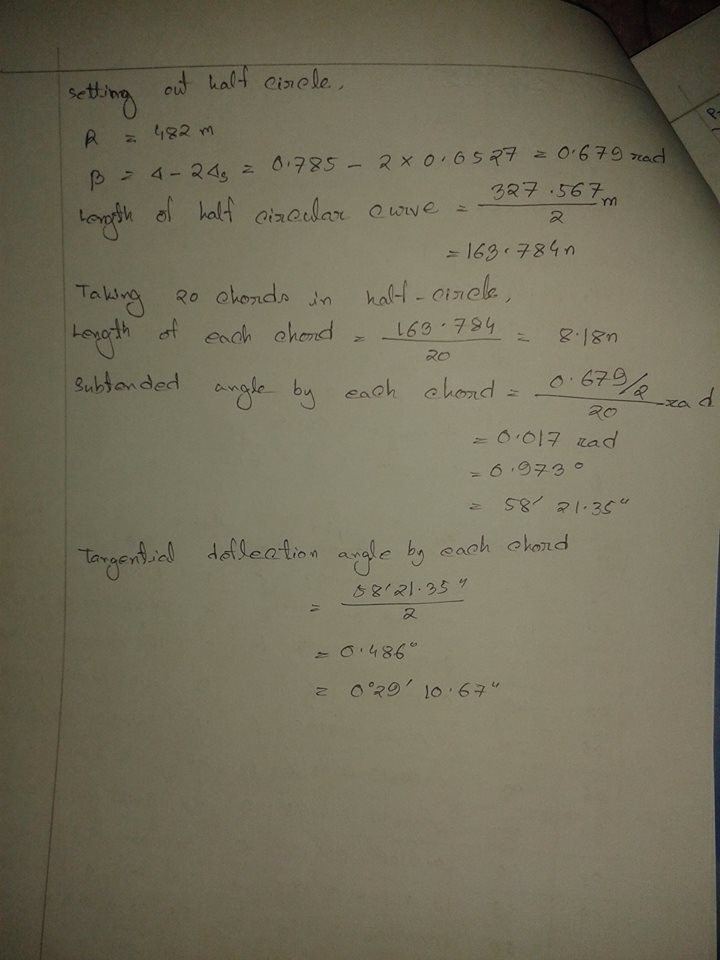 setting out half circle,
R = 482 m
β = Δ - 2Δs = 0.785 - 2 × 0.0527 = 0.679 rad
Length of half circular curve = 327.567/2 m
= 163.784m
Taking 20 chords in half-circle,
Length of each chord = 163.784/20 = 8.18m
Subtended angle by each chord = (0.679/2)/20 rad
= 0.017 rad
= 0.973°
= 58' 21.35"
Tangential deflection angle by each chord
= 58'21.35"/2
= 0.486°
= 0°29' 10.67"